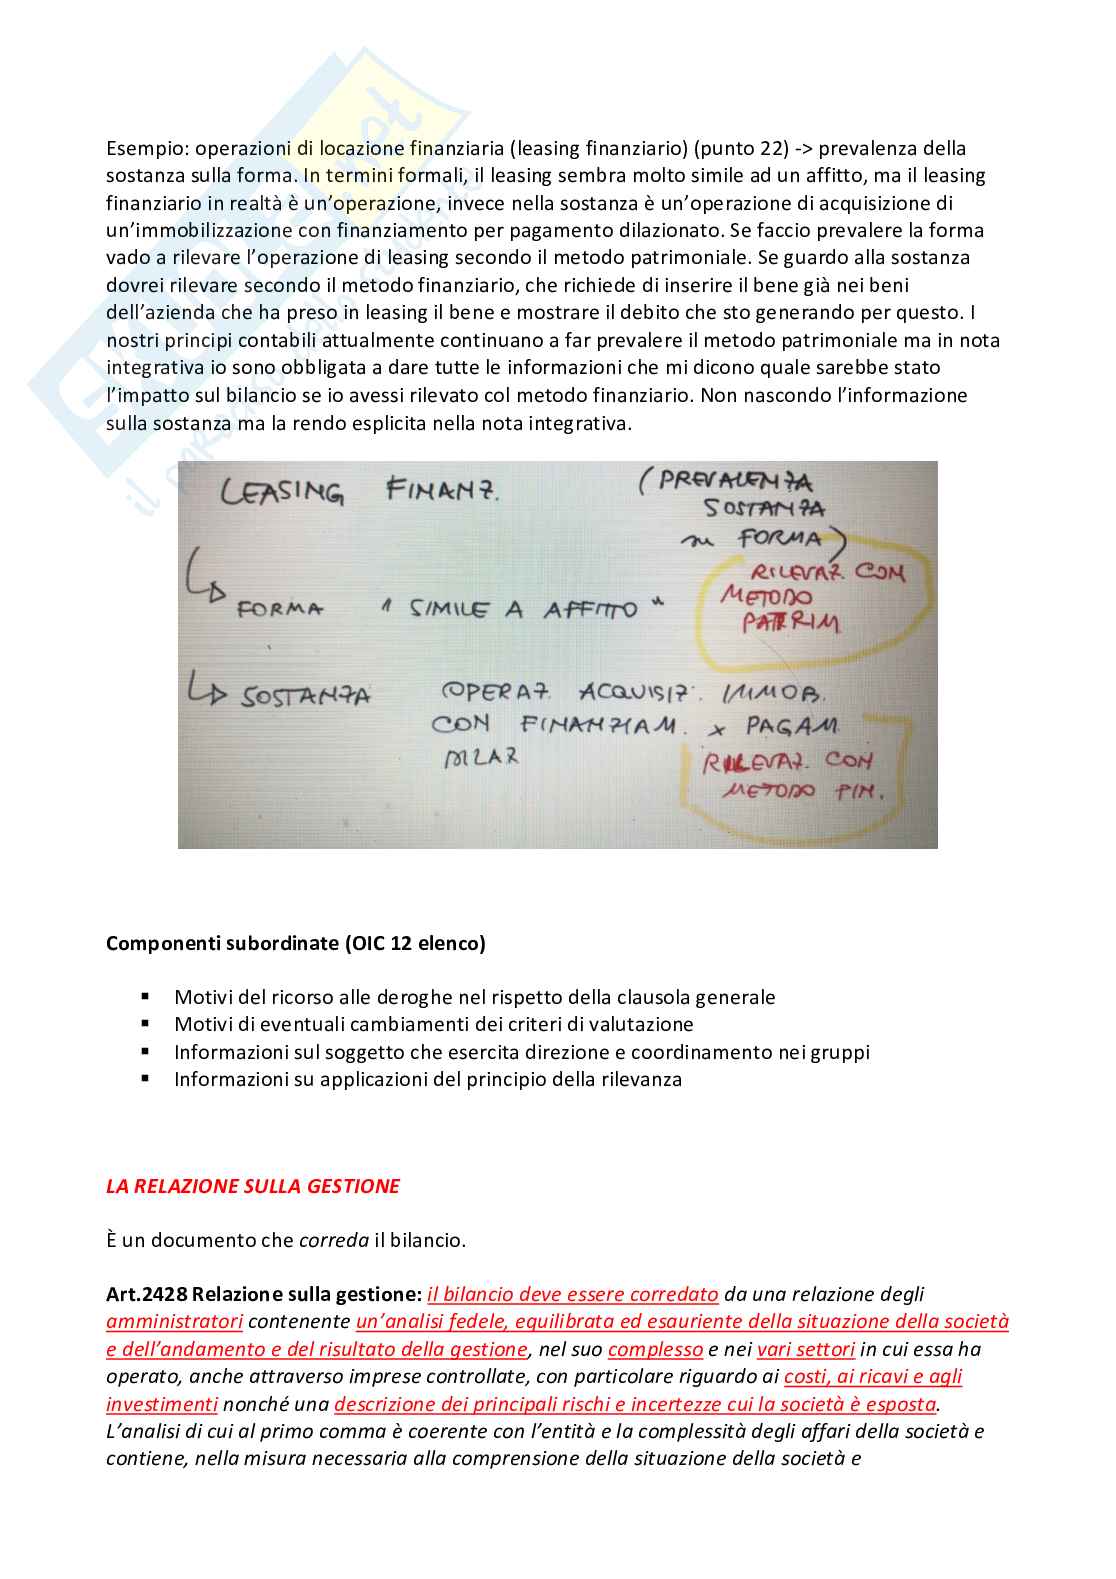 Esempio: operazioni di locazione finanziaria (leasing finanziario) (punto 22) -> prevalenza della
sostanza sulla forma. In termini formali, il leasing sembra molto simile ad un affitto, ma il leasing
finanziario in realtà è un’operazione, invece nella sostanza è un’operazione di acquisizione di
un’immobilizzazione con finanziamento per pagamento dilazionato. Se faccio prevalere la forma
vado a rilevare l’operazione di leasing secondo il metodo patrimoniale. Se guardo alla sostanza
dovrei rilevare secondo il metodo finanziario, che richiede di inserire il bene già nei beni
dell’azienda che ha preso in leasing il bene e mostrare il debito che sto generando per questo. I
nostri principi contabili attualmente continuano a far prevalere il metodo patrimoniale ma in nota
integrativa io sono obbligata a dare tutte le informazioni che mi dicono quale sarebbe stato
l’impatto sul bilancio se io avessi rilevato col metodo finanziario. Non nascondo l’informazione
sulla sostanza ma la rendo esplicita nella nota integrativa.
LEASING FINANZ. (PREVALENZA
SOSTANZA
su FORMA)
RILEVAZ. CON
METODO
PATRIM
FORMA "SIMILE A AFFITTO"
SOSTANZA OPERAZ. ACQUISIZ. IMMOB.
CON FINANZIAM. x PAGAM.
DILAZ
RILEVAZ. CON
METODO FIN.
Componenti subordinate (OIC 12 elenco)
▪ Motivi del ricorso alle deroghe nel rispetto della clausola generale
▪ Motivi di eventuali cambiamenti dei criteri di valutazione
▪ Informazioni sul soggetto che esercita direzione e coordinamento nei gruppi
▪ Informazioni su applicazioni del principio della rilevanza
LA RELAZIONE SULLA GESTIONE
È un documento che correda il bilancio.
Art.2428 Relazione sulla gestione: il bilancio deve essere corredato da una relazione degli
amministratori contenente un’analisi fedele, equilibrata ed esauriente della situazione della società
e dell’andamento e del risultato della gestione, nel suo complesso e nei vari settori in cui essa ha
operato, anche attraverso imprese controllate, con particolare riguardo ai costi, ai ricavi e agli
investimenti nonché una descrizione dei principali rischi e incertezze cui la società è esposta.
L’analisi di cui al primo comma è coerente con l’entità e la complessità degli affari della società e
contiene, nella misura necessaria alla comprensione della situazione della società e